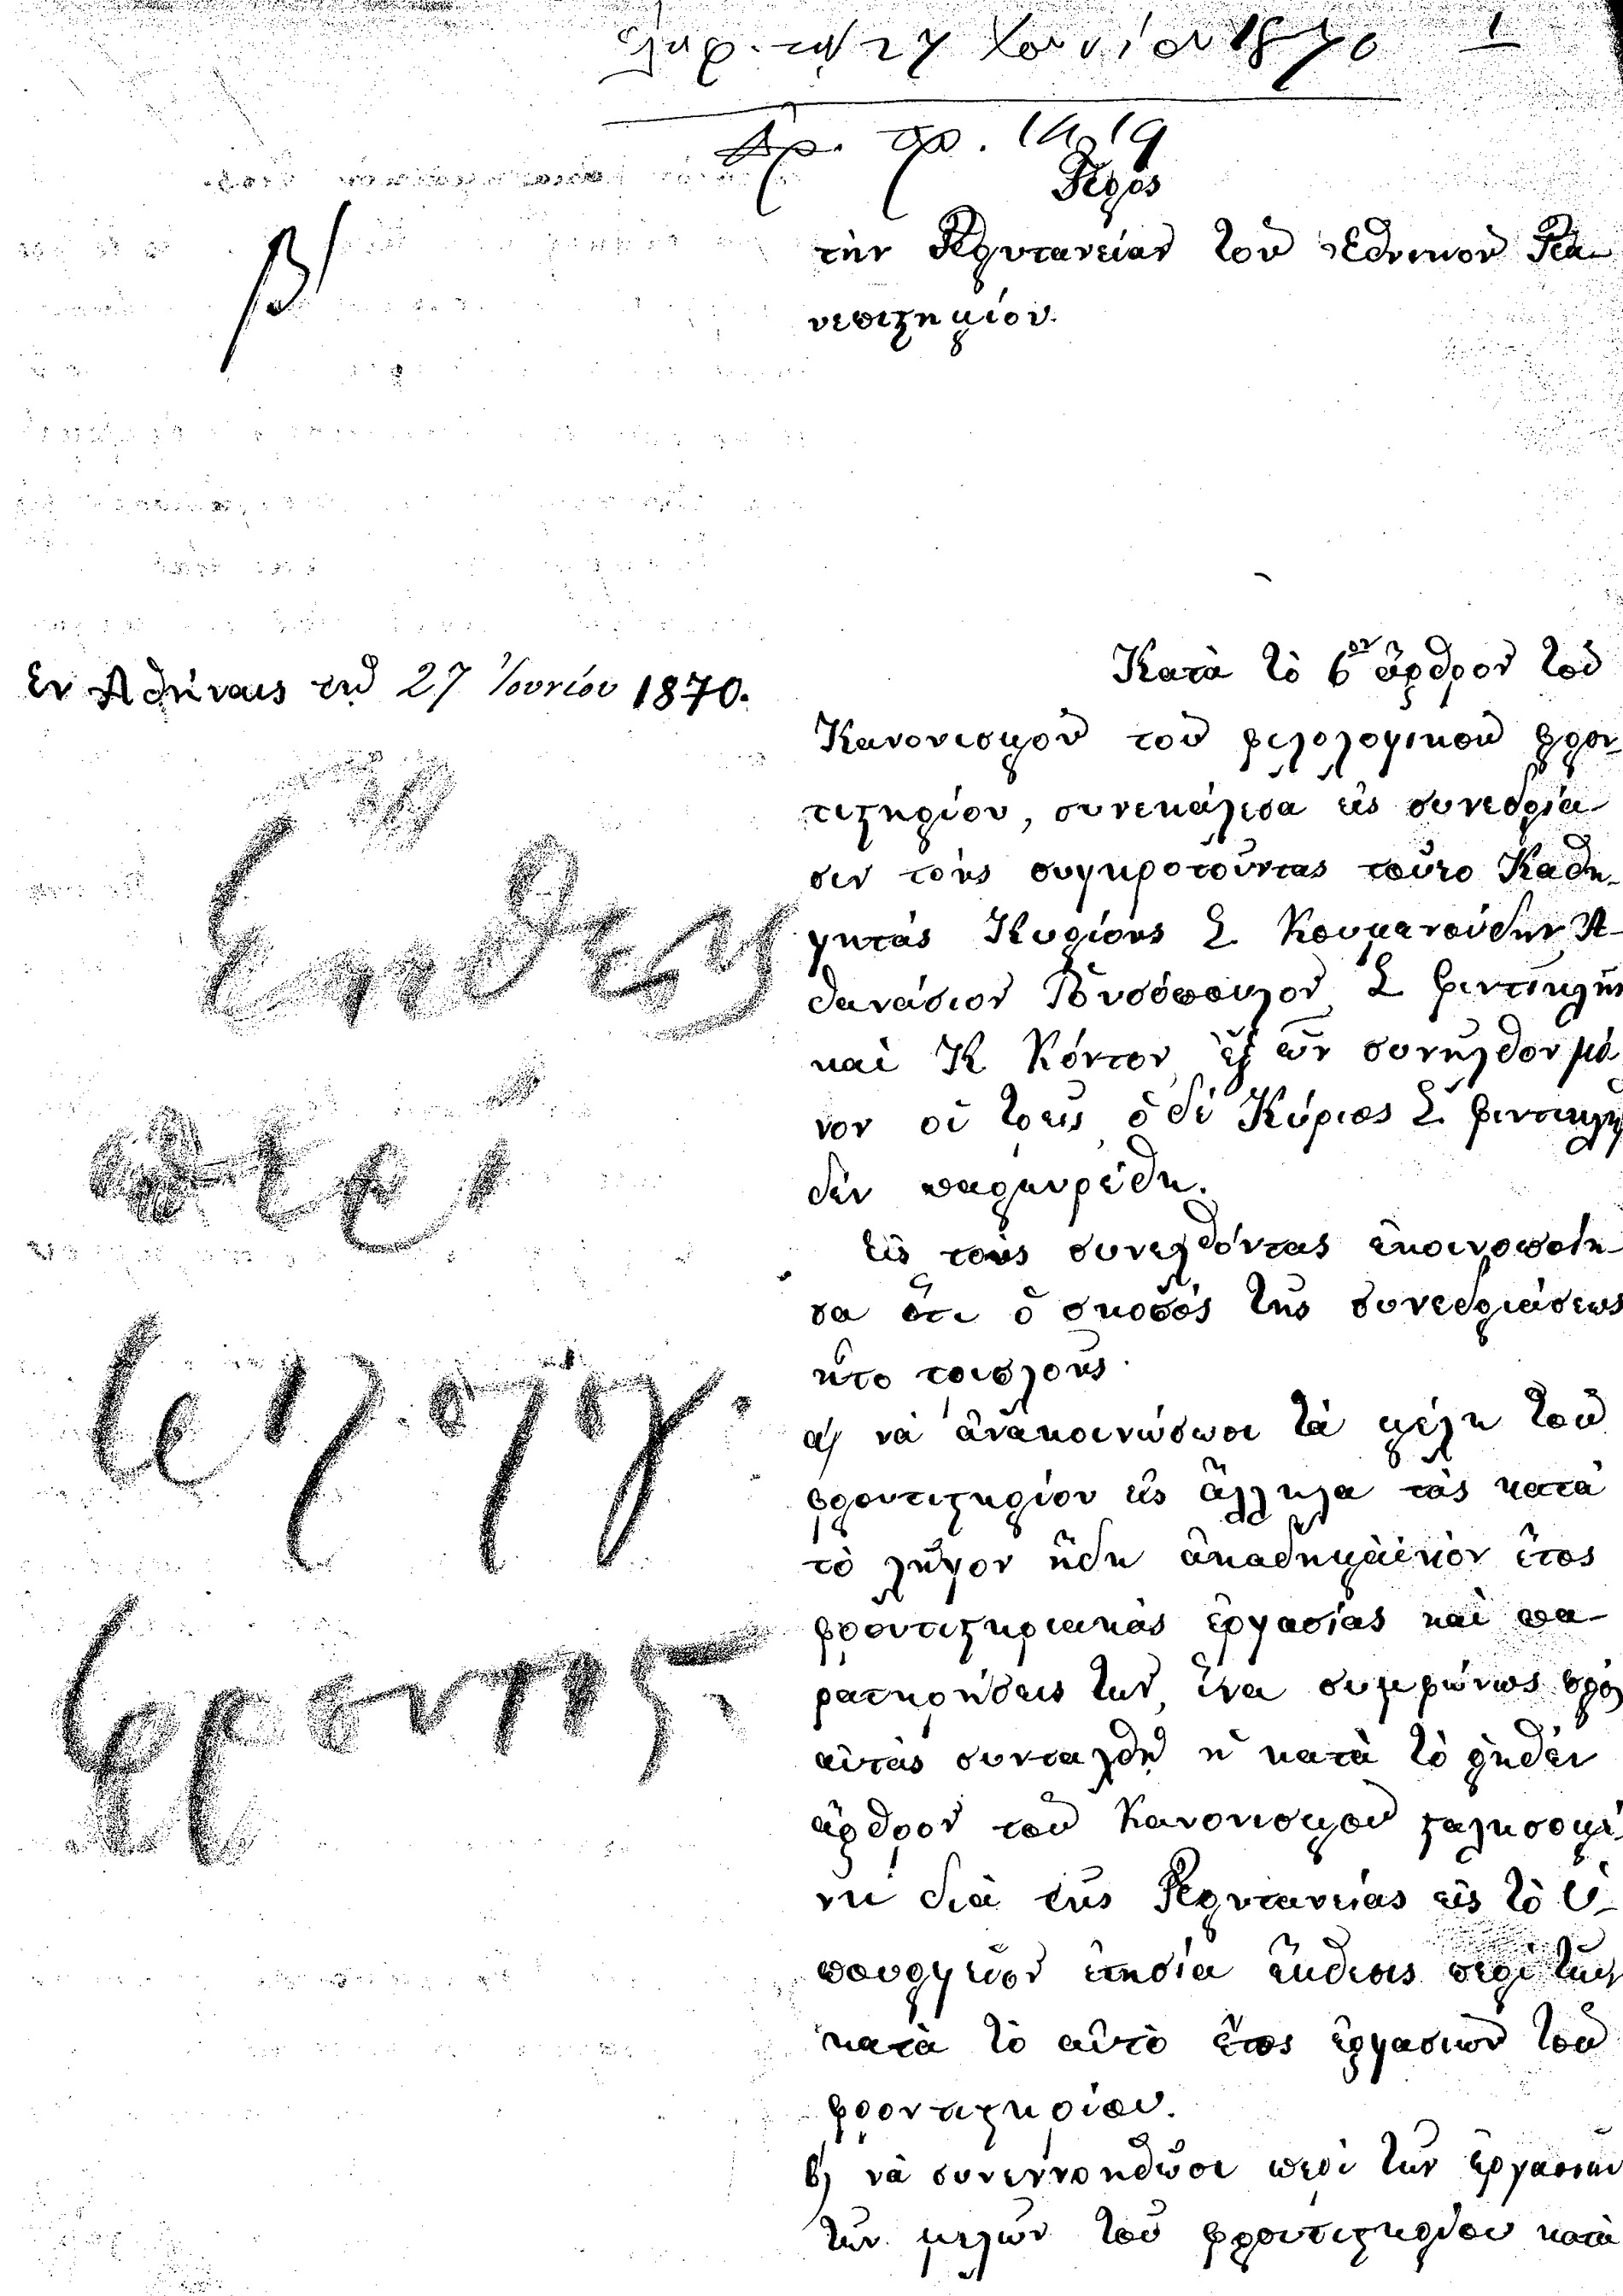 27 Ἰουνίου 1870 1
Ἀρ. πρ. 1419
Πρὸς
τὴν Πρυτανείαν τοῦ Ἐθνικοῦ Πα-
νεπιστημίου.
β′
Ἐν Ἀθήναις τῇ 27 Ἰουνίου 1870.
Ἔκθεσις
περὶ
φιλολογ.
φροντισ
Κατὰ τὸ 6ον ἄρθρον τοῦ
Κανονισμοῦ τοῦ φιλολογικοῦ φρον-
τιστηρίου, συνεκάλεσα εἰς συνεδρία-
σιν τοὺς συγκροτοῦντας τοῦτο Καθη-
γητὰς Κυρίους Σ Κουμανούδην Ἀ-
θανάσιον Ῥουσόπουλον Σ Φιντικλῆν
καὶ Κ Κόντον ἐξ ὧν συνῆλθον μό-
νον οἱ τρεῖς, ὁ δὲ Κύριος Σ Φιντικλῆς
δὲν παρηυρέθη.
Εἰς τοὺς συνελθόντας ἐκοινοποίη-
σα ὅτι ὁ σκοπὸς τῆς συνεδριάσεως
ἦτο τριπλοῦς.
α) νὰ ἀνακοινώσωσι τὰ μέλη τοῦ
φροντιστηρίου εἰς ἄλληλα τὰς κατὰ
τὸ λῆγον ἤδη ἀκαδημαϊκὸν ἔτος
φροντιστηριακὰς ἐργασίας καὶ πα-
ρατηρήσεις των, ἵνα συμφώνως πρὸς
αὐτὰς συνταχθῇ ἡ κατὰ τὸ ῥηθὲν
ἄρθρον τοῦ Κανονισμοῦ σταλησομέ-
νη διὰ τῆς Πρυτανείας εἰς τὸ Ὑ-
πουργεῖον ἐτησία ἔκθεσις περὶ τῶν
κατὰ τὸ αὐτὸ ἔτος ἐργασιῶν τοῦ
φροντιστηρίου.
β) νὰ συνεννοηθῶσι περὶ τῶν ἐργασιῶν
τῶν μελῶν τοῦ φροντιστηρίου κατὰ